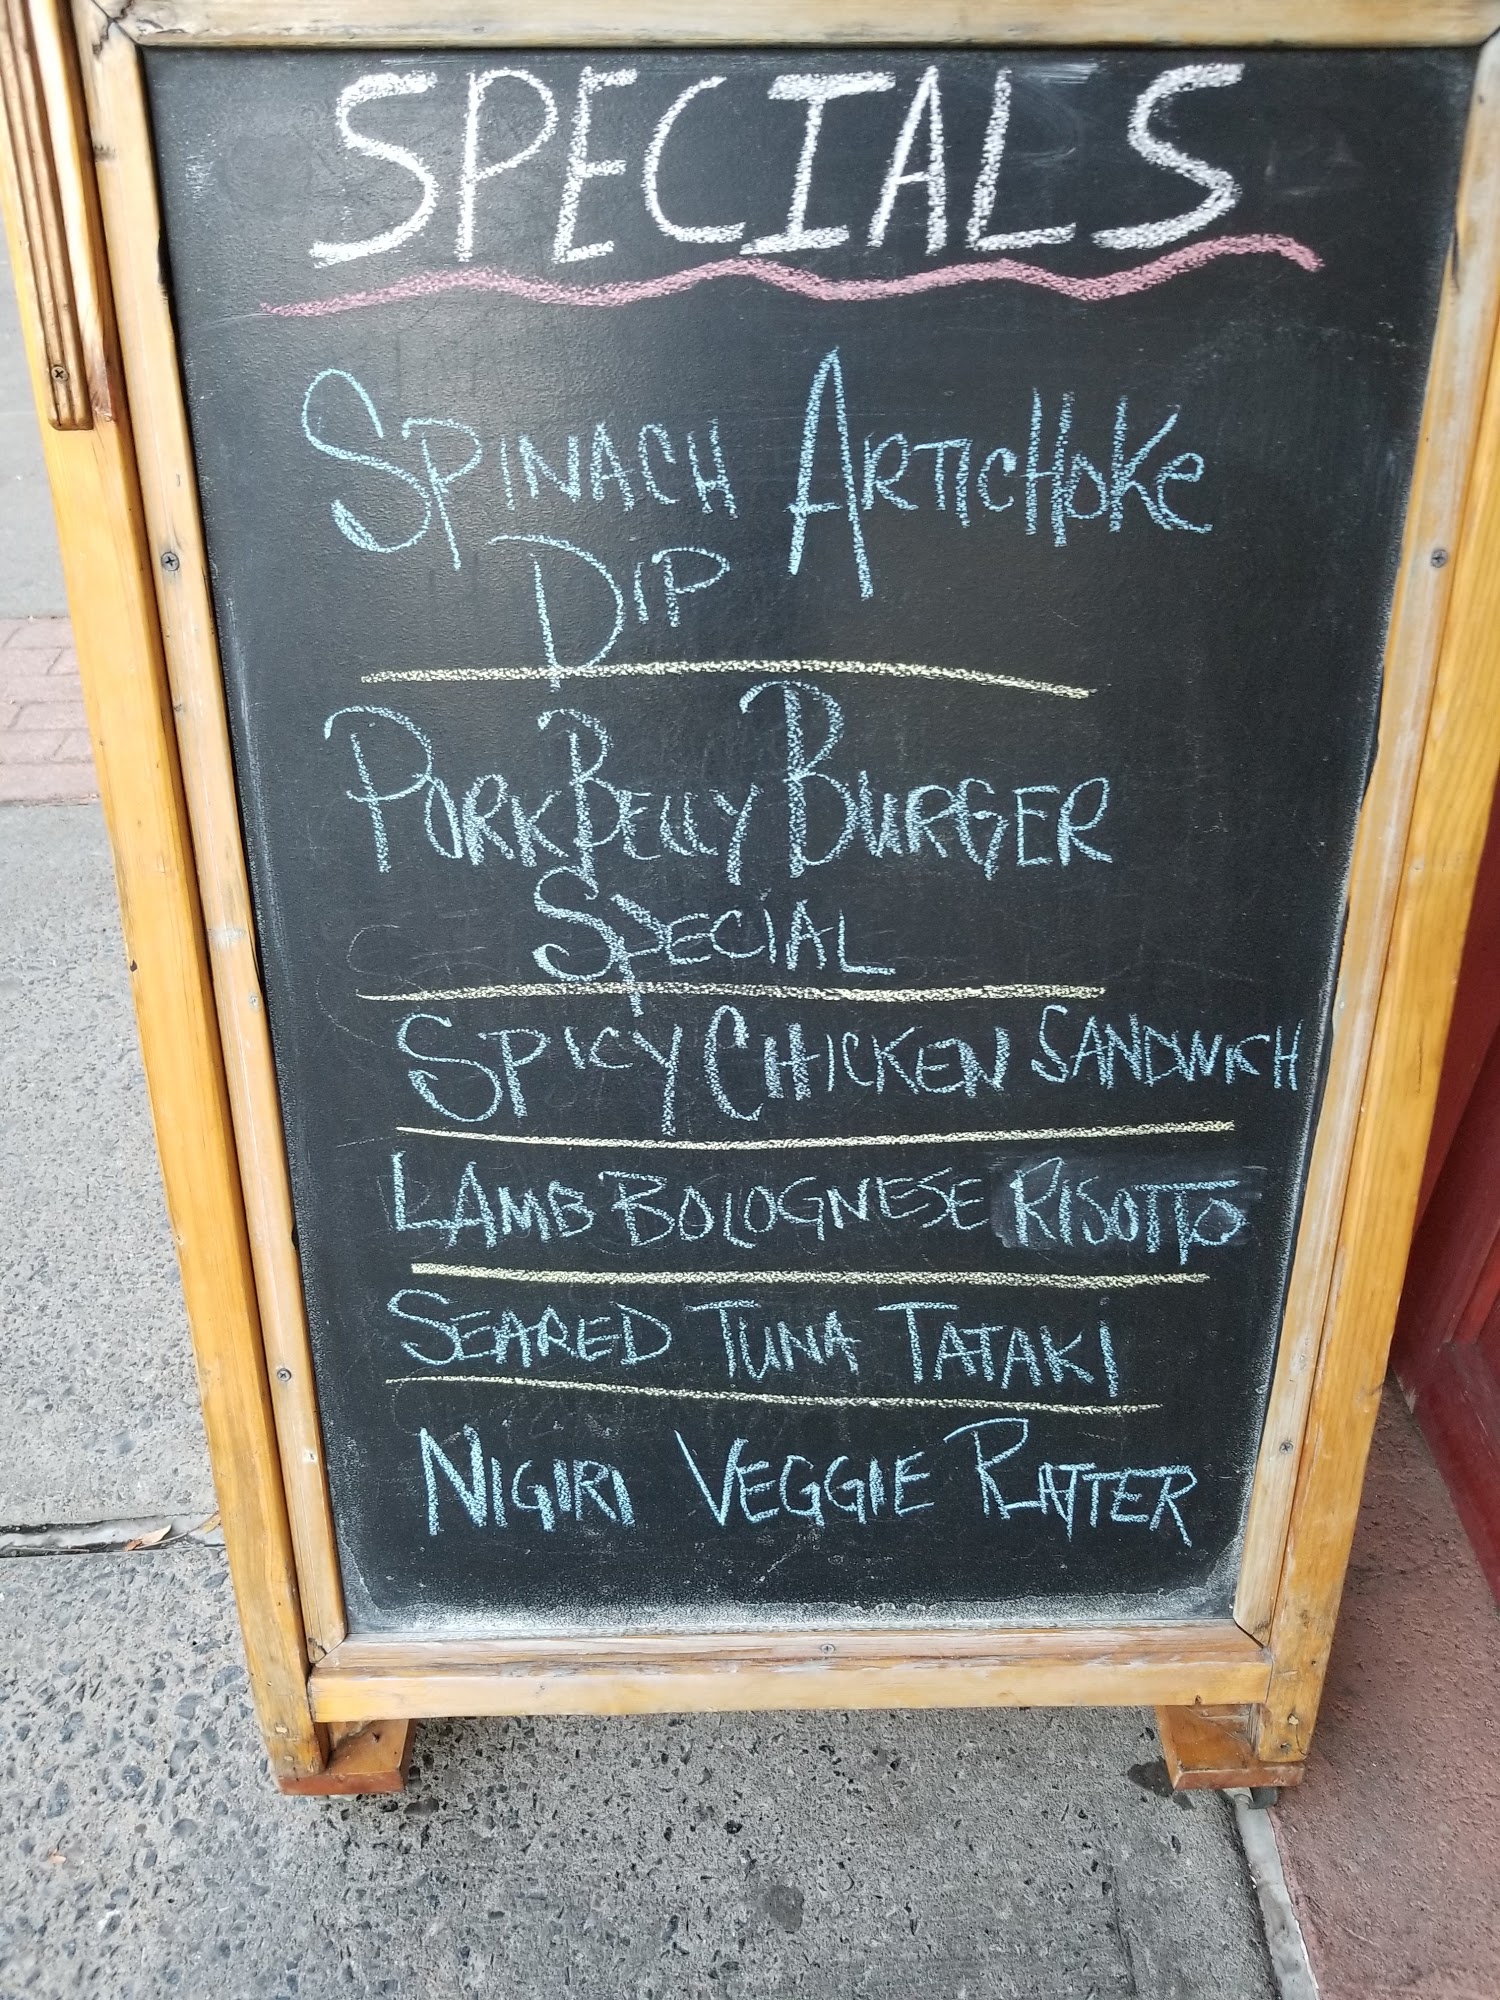 SPECIALS
SPINACH ARTICHOKE
DIP
PORK BELLY BURGER
SPECIAL
SPICY CHICKEN SANDWICH
LAMB BOLOGNESE RISOTTO
SEARED TUNA TATAKI
NIGIRI VEGGIE PLATTER